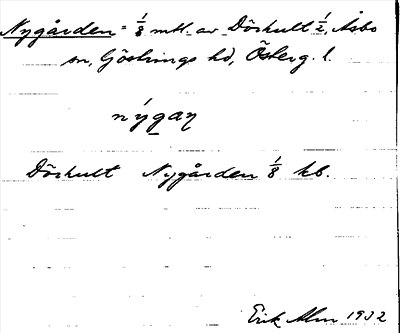 Nygården = 1/8 mtl. av Döshult 1/2, Åsbo
sn, Göstrings hd, Österg. l.
nýgaɲ
Döshult Nygården 1/8 kb.
Erik Alm 1932